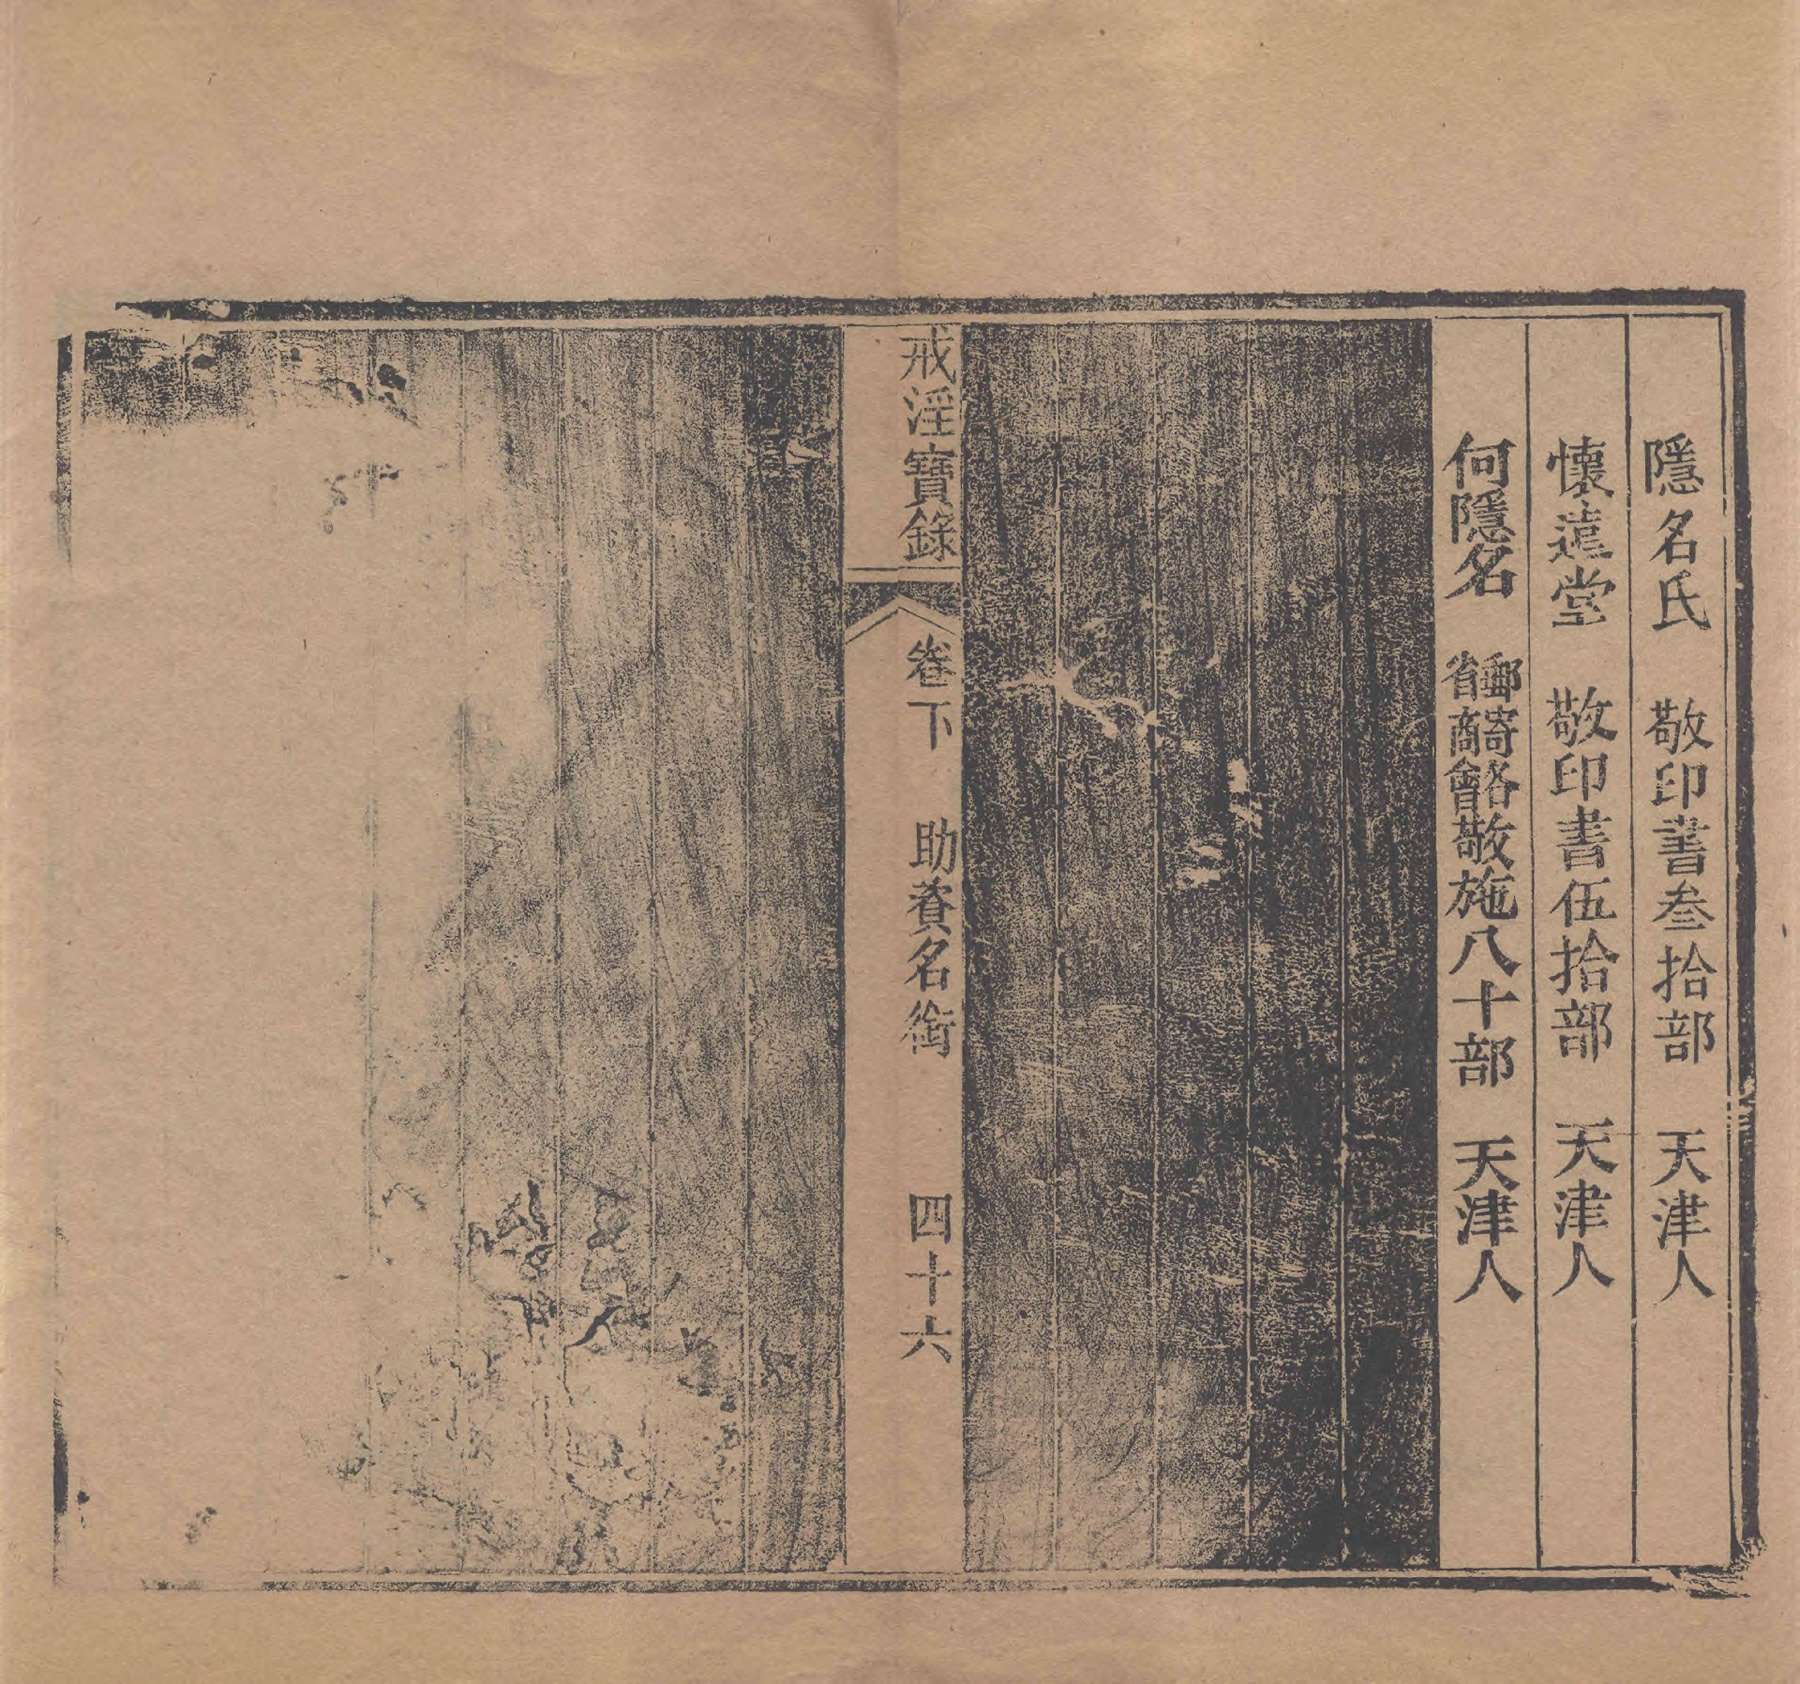 隱名氏 敬印書叁拾部 天津人
懷遠堂 敬印書伍拾部 天津人
何隱名 郵寄各省商會敬施八十部 天津人
戒淫寶錄 卷下 助資名銜 四十六